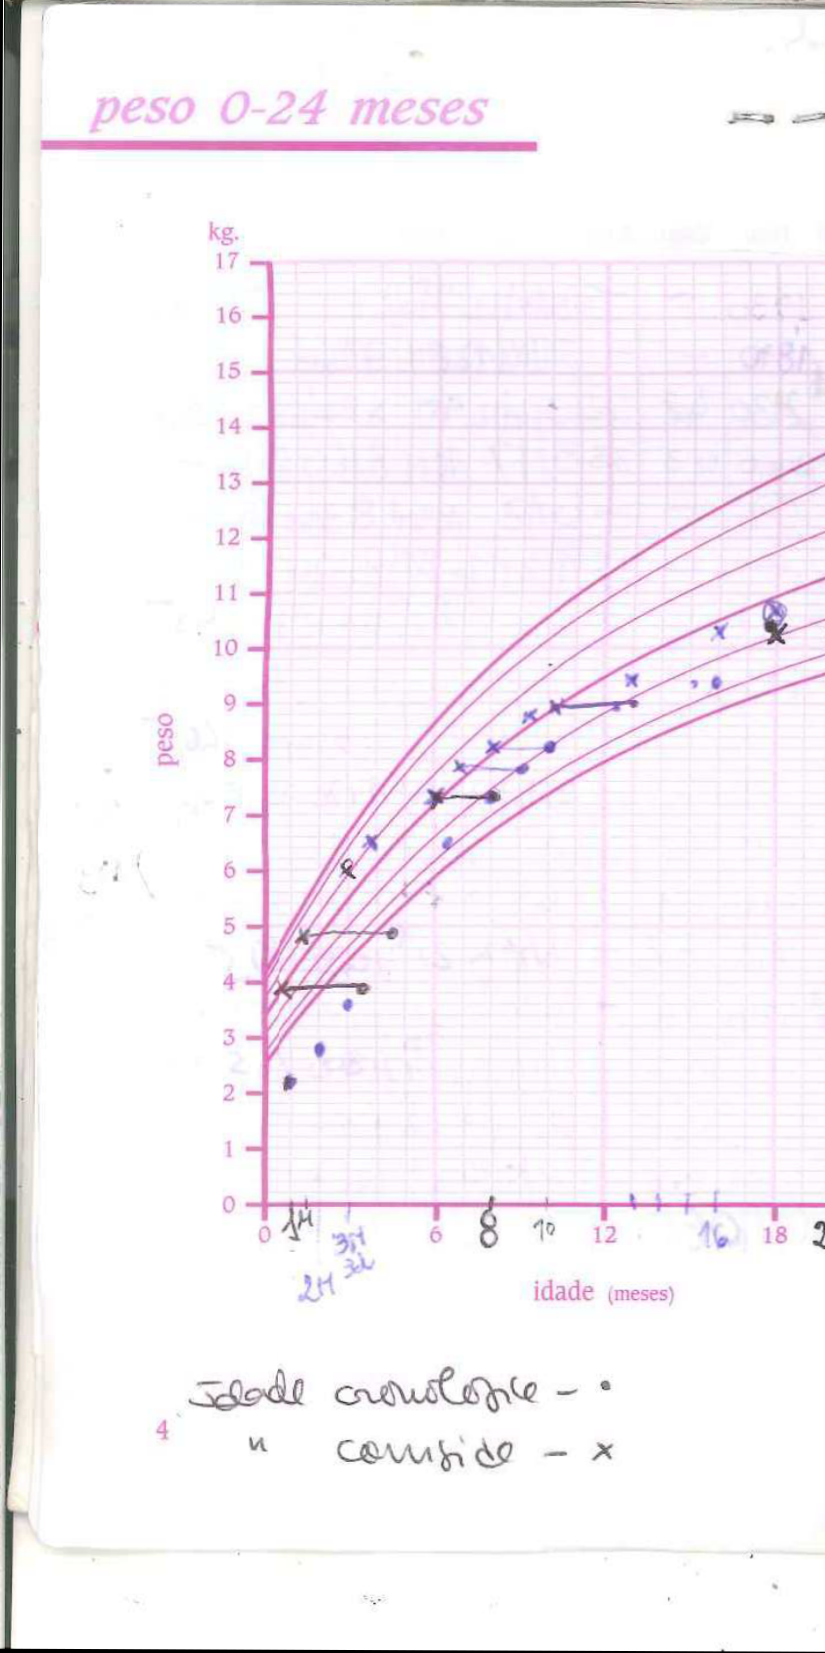 peso 0-24 meses
kg.
17
16
15
14
13
12
11
10
9
8
7
6
5
4
3
2
1
0
peso
0 1M 6 8 10 12 16 18
3M
3d
2M
idade (meses)
Idade cronologica - •
4 " corrigida - x